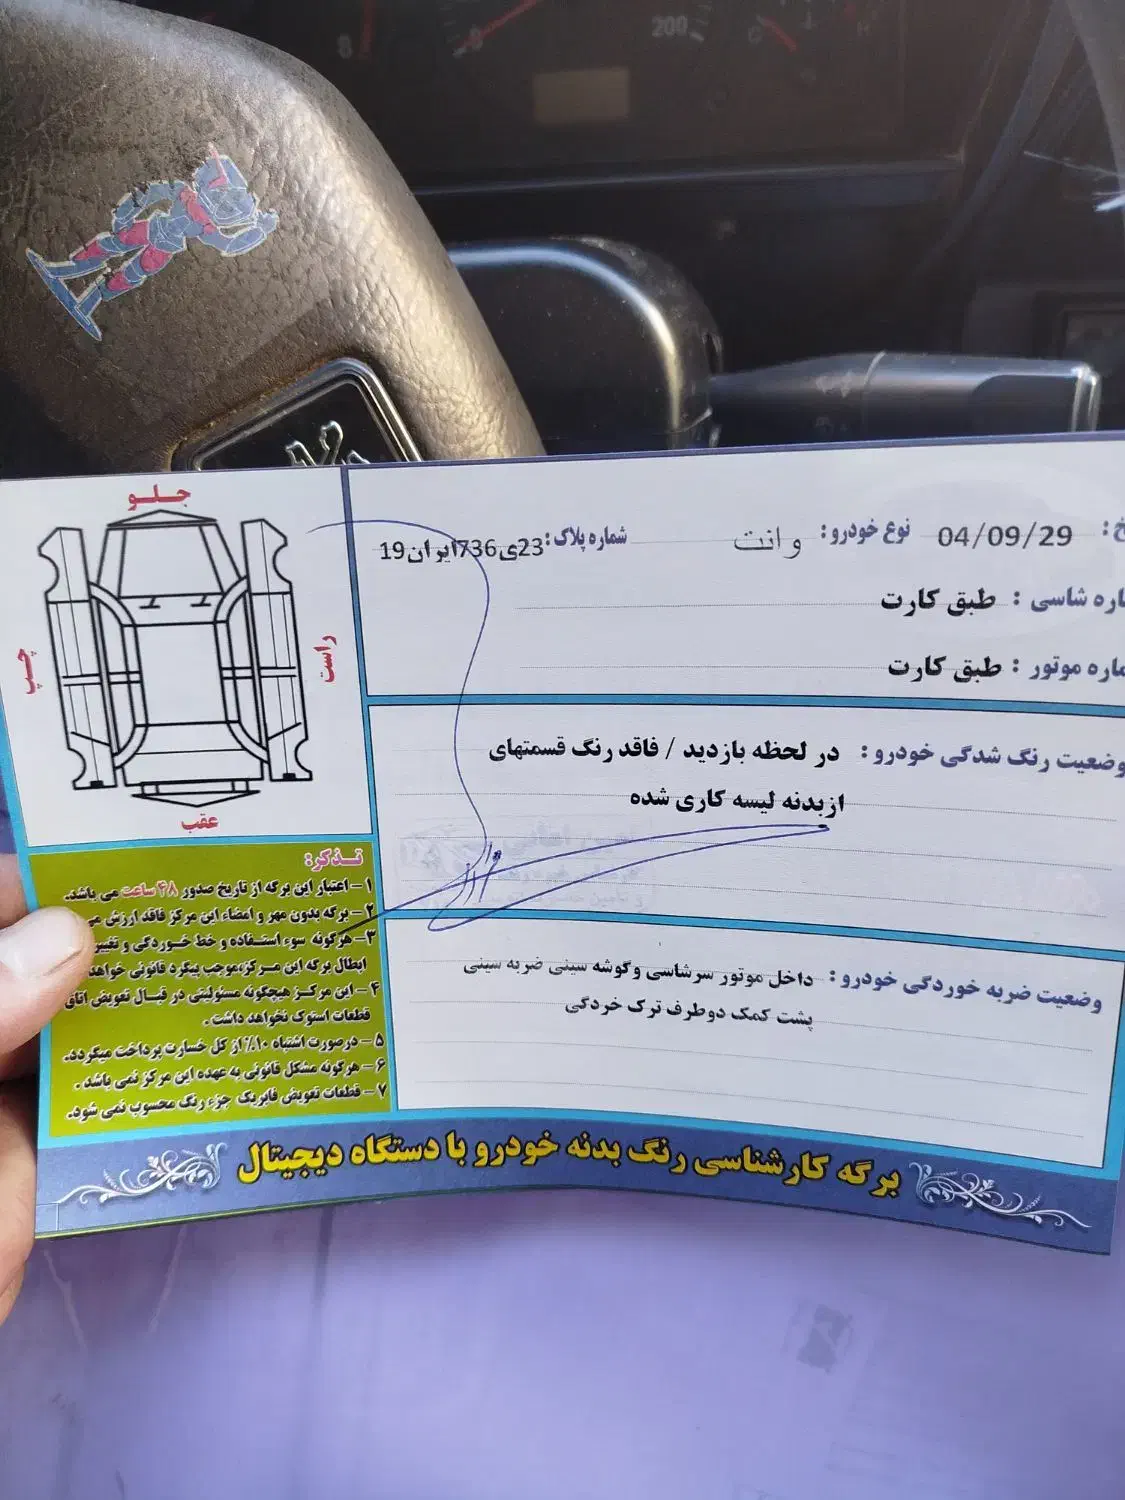 200
C
H
8
جلو
چپ
راست
عقب
خ : 04/09/29 نوع خودرو: وانت شماره پلاک: 23ی736ایران19
اره شاسی : طبق کارت
ماره موتور : طبق کارت
وضعیت رنگ شدگی خودرو : در لحظه بازدید / فاقد رنگ قسمتهای
ازبدنه لیسه کاری شده
وضعیت ضربه خوردگی خودرو : داخل موتور سرشاسی وگوشه سینی ضربه سینی
پشت کمک دوطرف ترک خردگی
تذکر:
۱- اعتبار این برگه از تاریخ صدور ۴۸ ساعت می باشد.
۲- برگه بدون مهر و امضاء این مرکز فاقد ارزش می
۳- هرگونه سوء استفاده و خط خوردگی و تغییر
ابطال برگه این مرکز،موجب پیگرد قانونی خواهد
۴- این مرکز هیچگونه مسئولیتی در قبال تعویض اتاق
قطعات استوک نخواهد داشت.
۵- درصورت اشتباه ۱۰% از کل خسارت پرداخت میگردد.
۶- هرگونه مشکل قانونی به عهده این مرکز نمی باشد .
۷- قطعات تعویض فابریک جزء رنگ محسوب نمی شود.
برگه کارشناسی رنگ بدنه خودرو با دستگاه دیجیتال